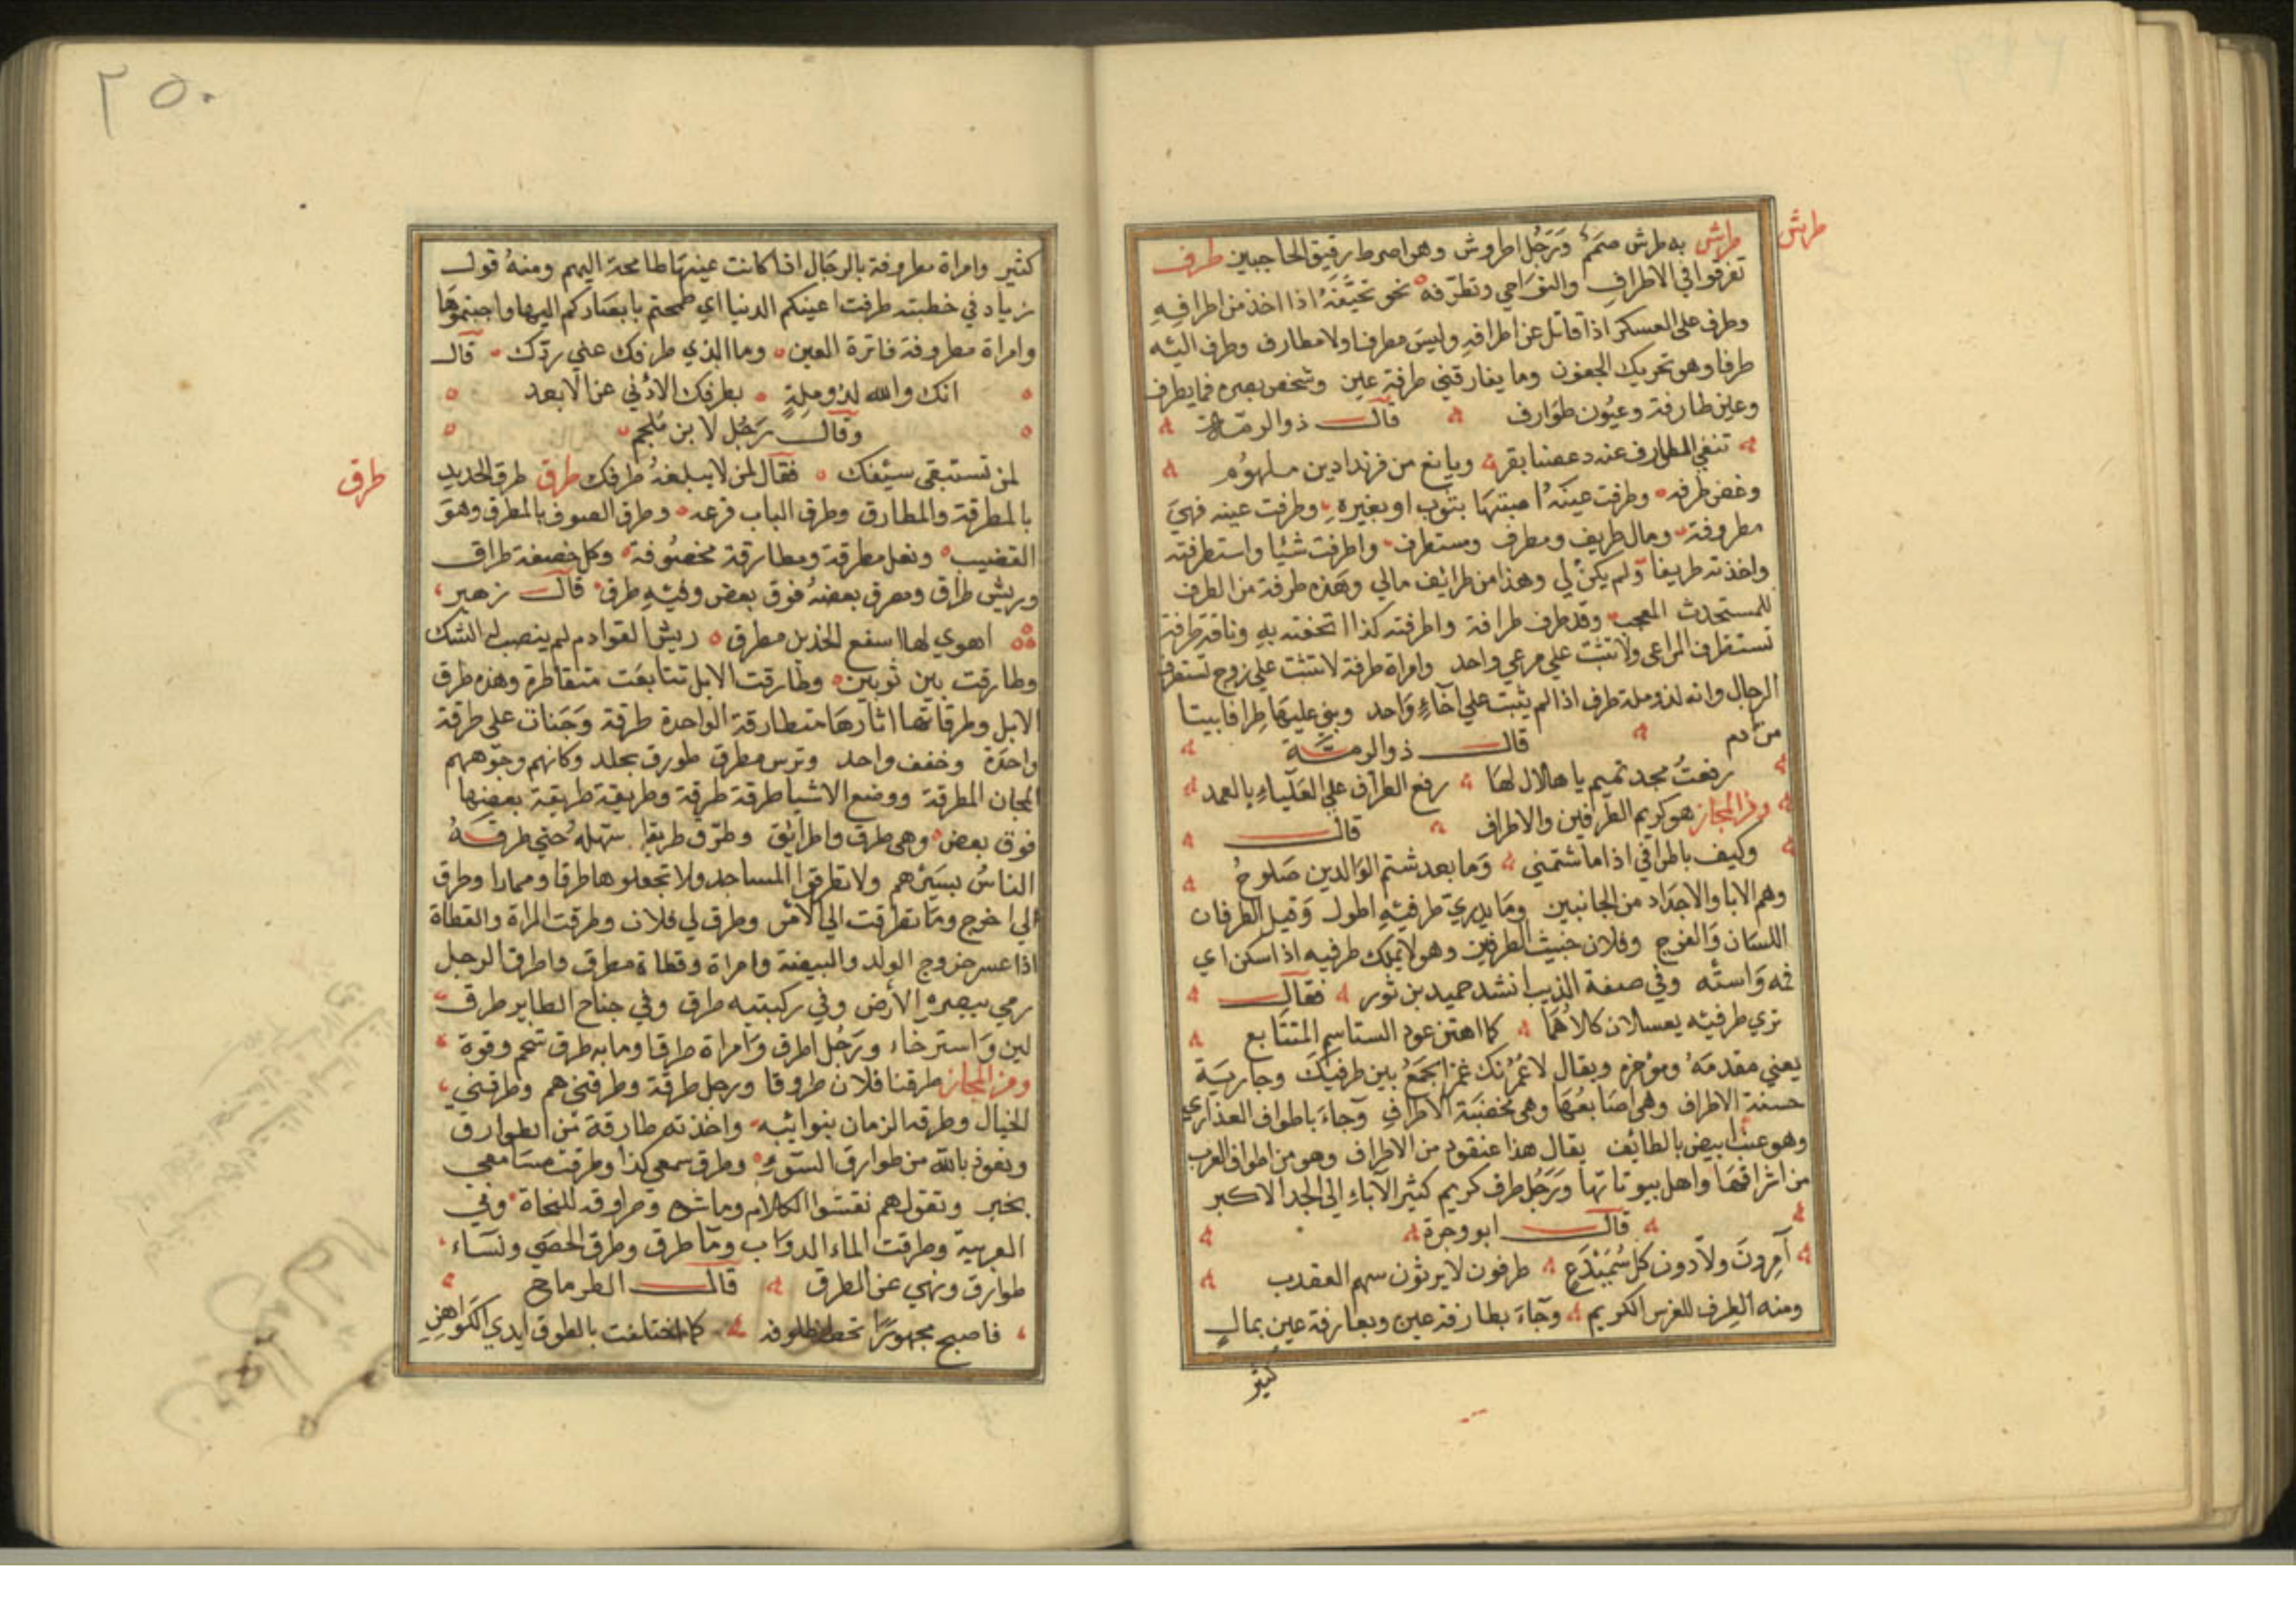 طرش
طرش به طرش صمم ورجل اطروش وهو اصرط رقيق الحاجبين طرف
تفرقوا في الاطراف والنواحي وتطرفه نحو تحيفه اذا اخذ من اطرافه
وطرف على العسكر اذا قاتل عن اطرافه وليس مطرفا ولا مطارف وطرف اليه
طرفا وهو تحريك الجفون وما يفارقني طرفة عين وشخص بصره فما يطرف
وعين طارفة وعيون طوارف قالـــ ذو الرمة
تنفي الطوارف عنه دعصتا بقر ويافع من فرندادين ملهوم
وغض طرفه وطرفت عينه اصبتها بثوب او بغيره وطرفت عينه فهي
مطروفة ومال طريف ومطرف ومستطرف واطرفت شيئا واستطرفته
واخذته طريفا ولم يكن لي وهذا من طرائف مالي وهذه طرفة من الطرف
للمستحدث المعجب وقد طرف طرافة واطرفته كذا اتحفته به وناقة طرفة
تستطرف المراعي ولا تثبت علي مرعي واحد وامراة طرفة لا تثبت علي زوج تستطرف
الرجال وانه لذو ملة طرف اذا لم يثبت علي اخاء واحد وبني عليها طرافا بيتا
من ادم قالـــ ذو الرمــة
رفعت مجد تميم يا هلال لها رفع الطراف علي العلياء بالعمد
ومن المجاز هو كريم الطرفين والاطراف قالـــ
وكيف باطرافي اذا ما شتمتني وما بعد شتم الوالدين صلوح
وهم الابا والاجداد من الجانبين وما يدري اي طرفيه اطول وقيل الطرفان
اللسان والفرج وفلان خبيث الطرفين وهو لا يملك طرفيه اذا سكن اي
فمه واسته وفي صفة الذيب انشد حميد بن ثور فقالـــ
تري طرفيه يعسلان كلاهما كما اهتز عود الساسم المتتابع
يعني مقدمه ومؤخره ويقال لاغمزنك غمزا يجمع بين طرفيك وجارية
حسنة الاطراف وهي اصابعها وهي مخضبة الاطراف وجاء باطراف العذاري
وهو عنب ابيض بالطائف يقال هذا عنقود من الاطراف وهو من اطراف العرب
من اشرافها واهل بيوتاتها ورجل طرف كريم كثير الآباء الي الجد الاكبر
قالـــ ابو وجزة
آمرون ولادون كل سميدع طرفون لا يرثون سهم العقدب
ومنه الطرف للفرس الكريم وجاء بطارفة عين وبعارفة عين بمال
كثير
٢٥٠
كثير وامراة مطروفة بالرجال اذا كانت عينها طامحة اليهم ومنه قولـ
زياد في خطبته طرفت اعينكم الدنيا اي طمحتم بابصاركم اليها واحببتموها
وامراة مطروفة فاترة العين وما الذي طرفك عني ردك قالـ
انك والله لذو ملة يطرفك الادني عن الابعد
وقالـــ رجل لابن ملجم
لمن تستبقي سيفك فقال لمن لا يبلغه طرفك طرق طرق الحديد
طرق
بالمطرقة والمطارق وطرق الباب قرعه وطرق الصوف بالمطرق وهو
القضيب ونعل مطرقة ومطارقة مخصوفة وكل خصفة طراق
وريش طراق ومطرق بعضه فوق بعض وفيه طرق قالـــ زهير
اهوي لها اسفع الخدين مطرق ريش القوادم لم ينصب له الشبك
وطارقت بين ثوبين وطارقت الابل تتابعت متقاطرة وهذه طرق
الابل وطرقاتها اثارها متطارقة الواحدة طرقة وجنات علي طرقة
واحدة وخفف واحد وترس مطرق طورق بجلد وكانهم وجوههم
المجان المطرقة ووضع الاشيا طرقة طرقة وطريقة طريقة بعضها
فوق بعض وهي طرق وطرائق وطرق طريقا سهله حتي طرقه
الناس بسيرهم ولا تطرقوا المساجد ولا تجعلوها طرقا وممارا وطرق
لي اخرج وما تطرقت الي الامر وطرق لي فلان وطرقت المراة والقطاة
اذا عسر خروج الولد والبيضة وامراة وقطاة مطرق واطرق الرجل
رمي ببصره الارض وفي ركبتيه طرق وفي جناح الطاير طرق
لين واسترخاء ورجل اطرق وامراة طرقا وما به طرق شحم وقوة
ومن المجاز طرقنا فلان طروقا ورجل طرقة وطرقني هم وطرقني
الخيال وطرقه الزمان بنوائبه واخذته طارقة من الطوارق
ونعوذ بالله من طوارق السوء وطرق سمعي كذا وطرقت مسامعي
بخير وتقول هم نقشوا الكلام وماشوه وطراوقه للنحاة وفي
العربية وطرقت الماء الدواب وما طرق وطرق الحصي ونساء
طوارق ونهي عن الطرق قالـــ الطرماح
فاصبح مجهورا تخط ظلوفه كما اختلفت بالطرق ايدي الكواهن